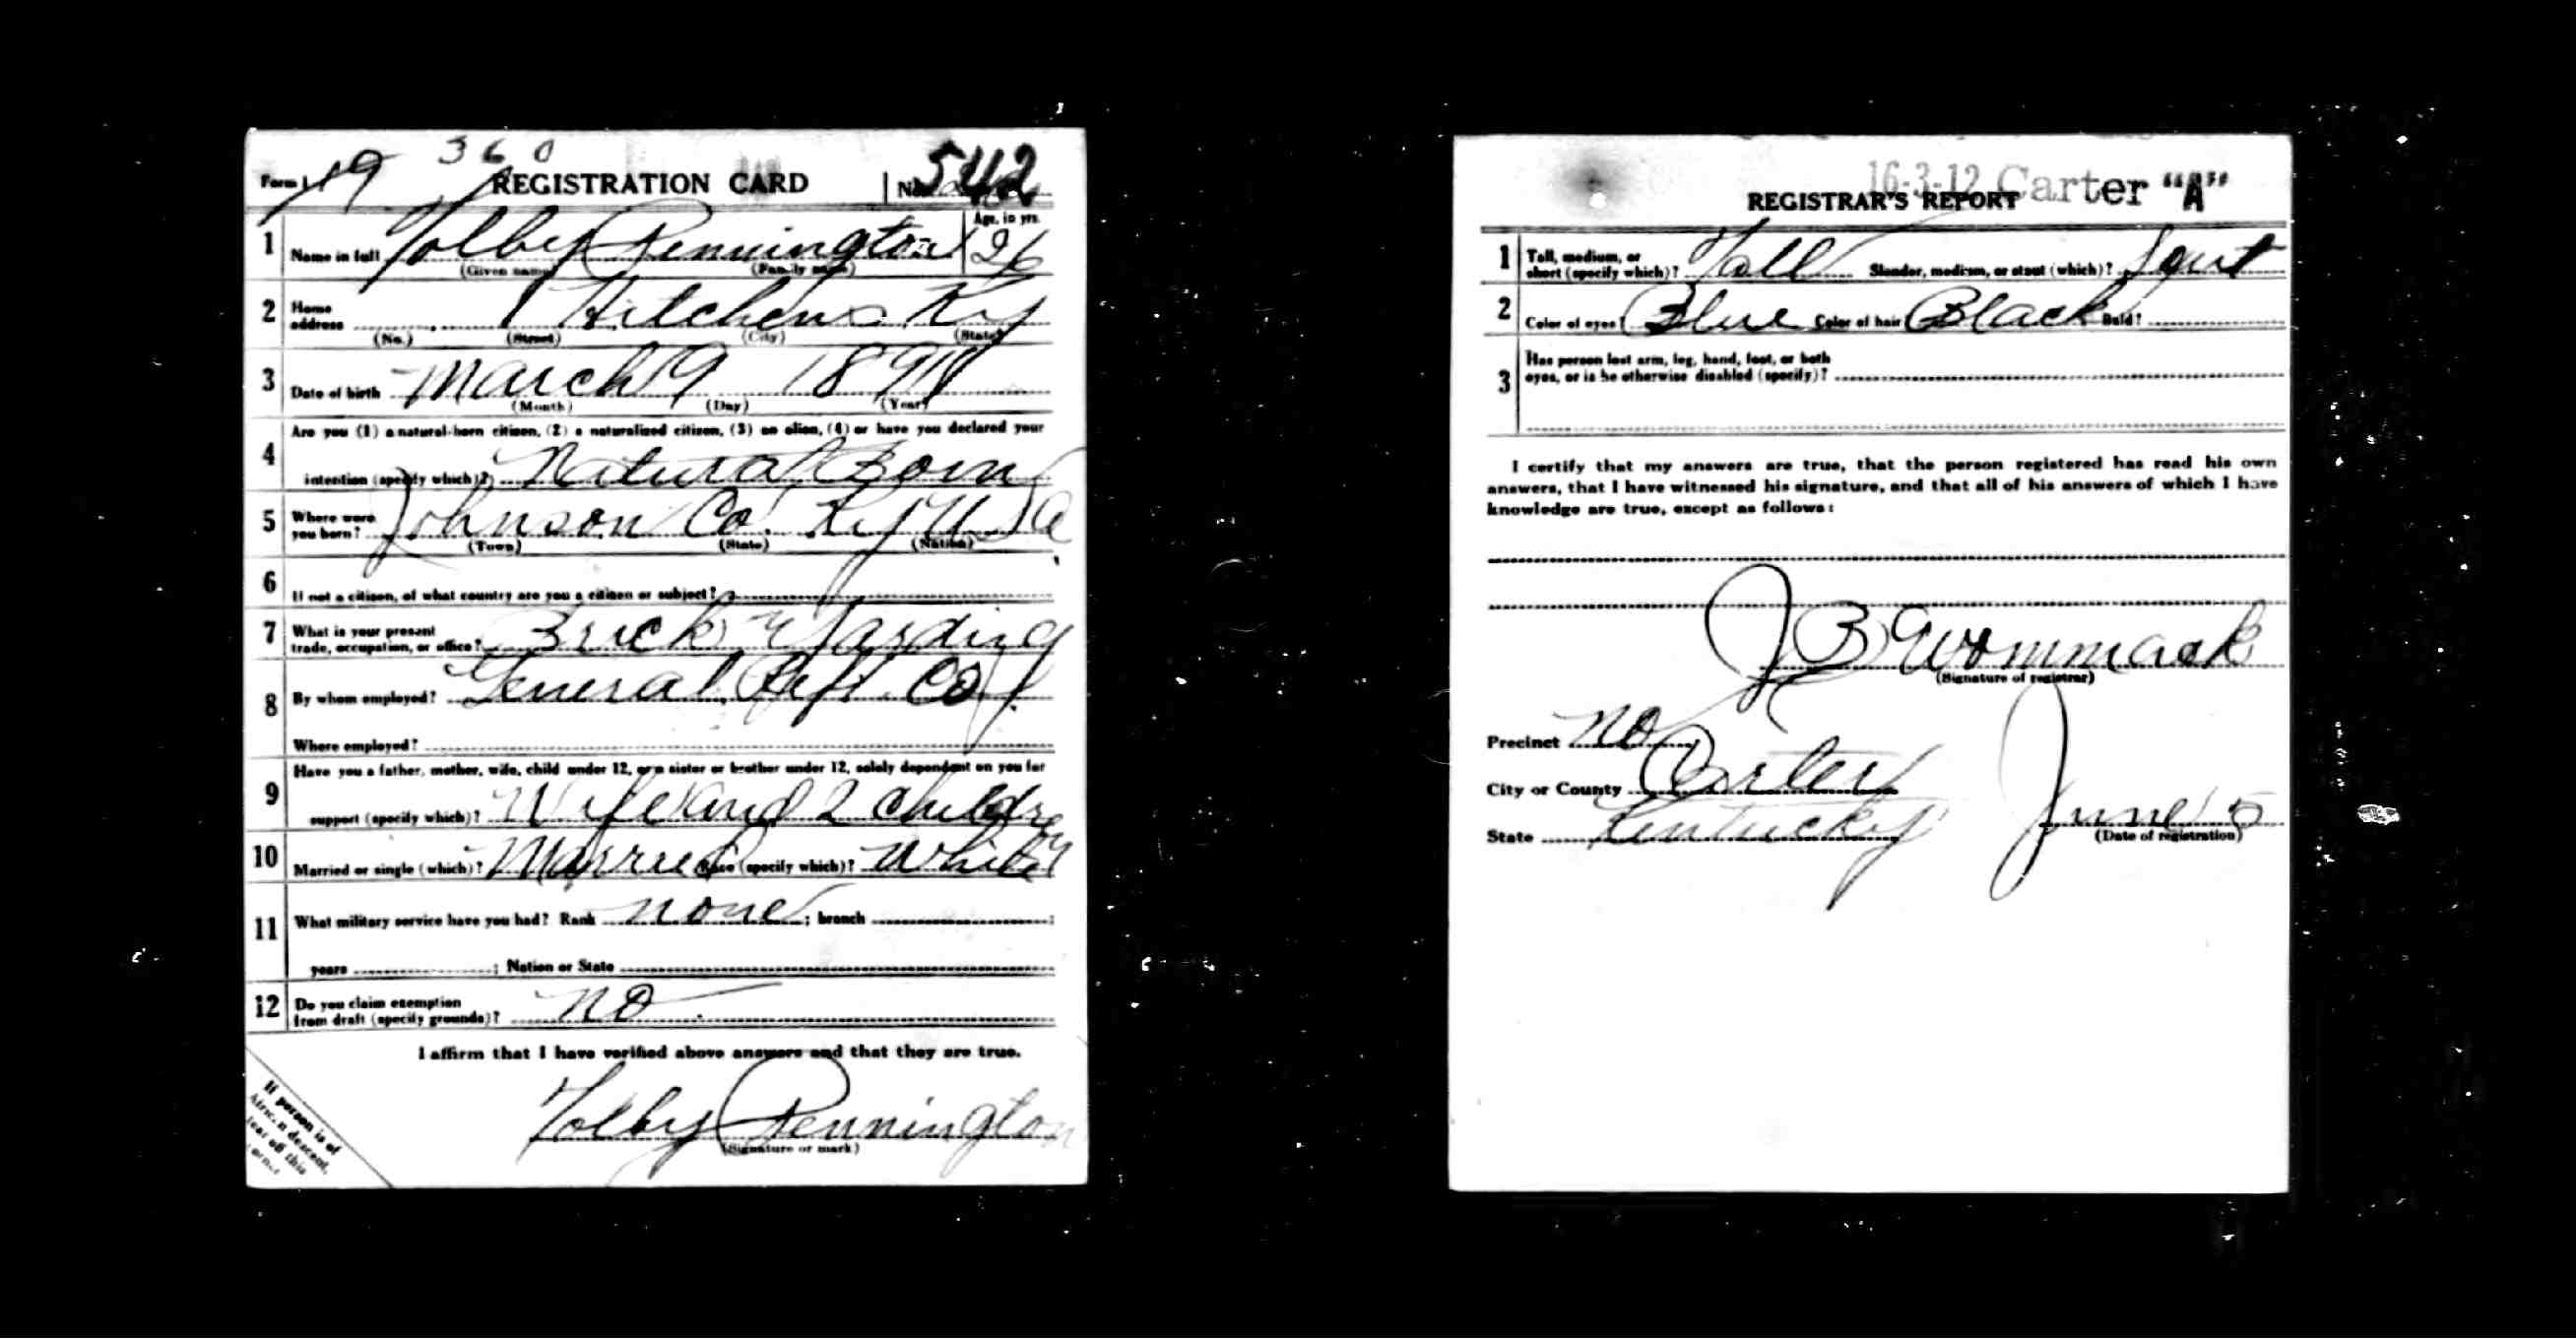 360
Form 1 19 REGISTRATION CARD No. 542
1 Name in full Tolby Pennington Age, in yrs. 26
(Given name) (Family name)
2 Home address Hitchens Ky
(No.) (Street) (City) (State)
3 Date of birth March 9 1891
(Month) (Day) (Year)
Are you (1) a natural-born citizen, (2) a naturalized citizen, (3) an alien, (4) or have you declared your
4 intention (specify which)? Natural Born
5 Where were you born? Johnson Co. Ky U.S.A
(Town) (State) (Nation)
6 If not a citizen, of what country are you a citizen or subject?
7 What is your present trade, occupation, or office? Brick Yarding
8 By whom employed? General Raft. Co.
Where employed?
Have you a father, mother, wife, child under 12, or a sister or brother under 12, solely dependent on you for
9 support (specify which)? Wife and 2 Childre
10 Married or single (which)? Married Race (specify which)? White
11 What military service have you had? Rank none ; branch ;
years ; Nation or State
12 Do you claim exemption from draft (specify grounds)? no.
I affirm that I have verified above answers and that they are true.
Tolby Pennington
(Signature or mark)
If person is of
African descent,
tear off this
corner
16-3-12 Carter "A"
REGISTRAR'S REPORT
1 Tall, medium, or short (specify which)? Tall Slender, medium, or stout (which)?
2 Color of eyes? Blue Color of hair? Black Bald?
3 Has person lost arm, leg, hand, foot, or both eyes, or is he otherwise disabled (specify)?
I certify that my answers are true, that the person registered has read his own
answers, that I have witnessed his signature, and that all of his answers of which I have
knowledge are true, except as follows:
J B Wommack
(Signature of registrar)
Precinct no
City or County Carter
State Kentucky June 5
(Date of registration)